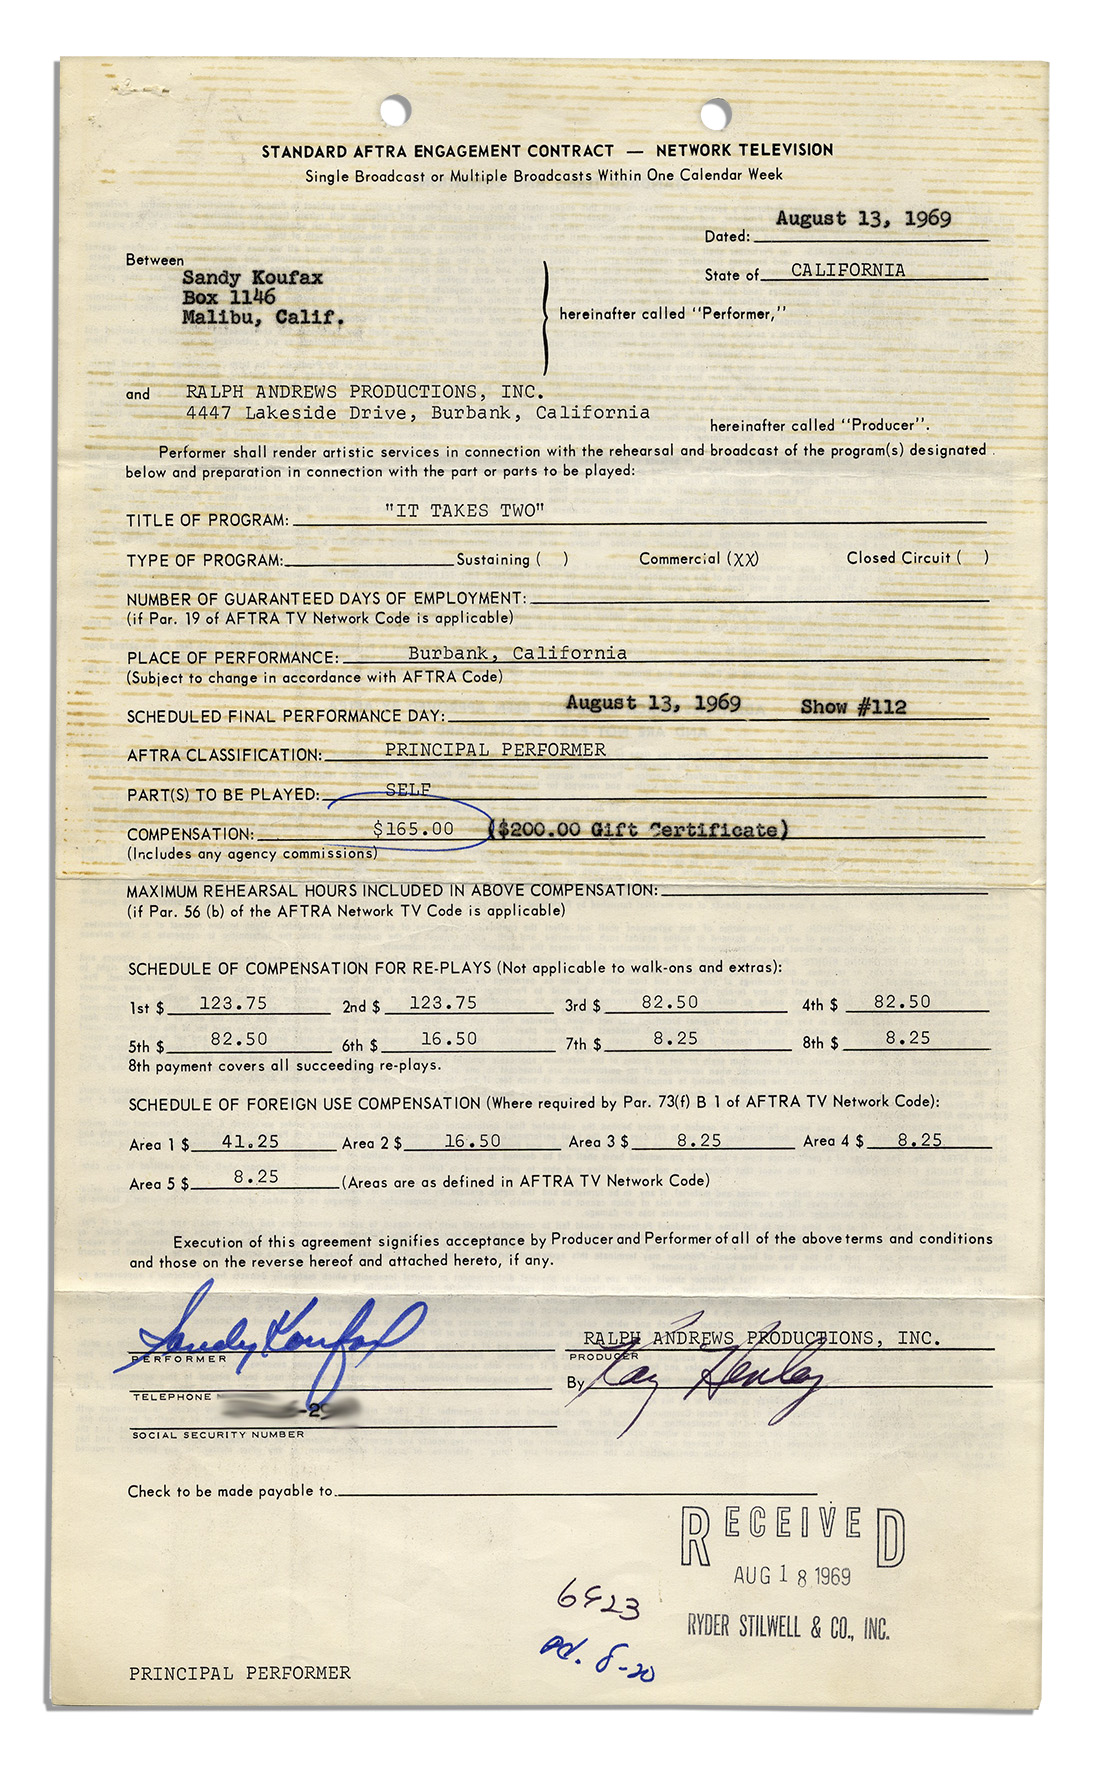 STANDARD AFTRA ENGAGEMENT CONTRACT — NETWORK TELEVISION
Single Broadcast or Multiple Broadcasts Within One Calendar Week
Dated: August 13, 1969
Between
Sandy Koufax
Box 1146
Malibu, Calif.
State of CALIFORNIA
hereinafter called "Performer,"
and RALPH ANDREWS PRODUCTIONS, INC.
4447 Lakeside Drive, Burbank, California
hereinafter called "Producer".
Performer shall render artistic services in connection with the rehearsal and broadcast of the program(s) designated
below and preparation in connection with the part or parts to be played:
TITLE OF PROGRAM: "IT TAKES TWO"
TYPE OF PROGRAM: Sustaining ( ) Commercial (XX) Closed Circuit ( )
NUMBER OF GUARANTEED DAYS OF EMPLOYMENT:
(if Par. 19 of AFTRA TV Network Code is applicable)
PLACE OF PERFORMANCE: Burbank, California
(Subject to change in accordance with AFTRA Code)
SCHEDULED FINAL PERFORMANCE DAY: August 13, 1969 Show #112
AFTRA CLASSIFICATION: PRINCIPAL PERFORMER
PART(S) TO BE PLAYED: SELF
COMPENSATION: $165.00 ($200.00 Gift Certificate)
(Includes any agency commissions)
MAXIMUM REHEARSAL HOURS INCLUDED IN ABOVE COMPENSATION:
(if Par. 56 (b) of the AFTRA Network TV Code is applicable)
SCHEDULE OF COMPENSATION FOR RE-PLAYS (Not applicable to walk-ons and extras):
1st $ 123.75 2nd $ 123.75 3rd $ 82.50 4th $ 82.50
5th $ 82.50 6th $ 16.50 7th $ 8.25 8th $ 8.25
8th payment covers all succeeding re-plays.
SCHEDULE OF FOREIGN USE COMPENSATION (Where required by Par. 73(f) B 1 of AFTRA TV Network Code):
Area 1 $ 41.25 Area 2 $ 16.50 Area 3 $ 8.25 Area 4 $ 8.25
Area 5 $ 8.25 (Areas are as defined in AFTRA TV Network Code)
Execution of this agreement signifies acceptance by Producer and Performer of all of the above terms and conditions
and those on the reverse hereof and attached hereto, if any.
Sandy Koufax
PERFORMER
RALPH ANDREWS PRODUCTIONS, INC.
PRODUCER
By Kay Henley
TELEPHONE
SOCIAL SECURITY NUMBER
Check to be made payable to
RECEIVED
AUG 18 1969
RYDER STILWELL & CO., INC.
6923
pd. 8-20
PRINCIPAL PERFORMER